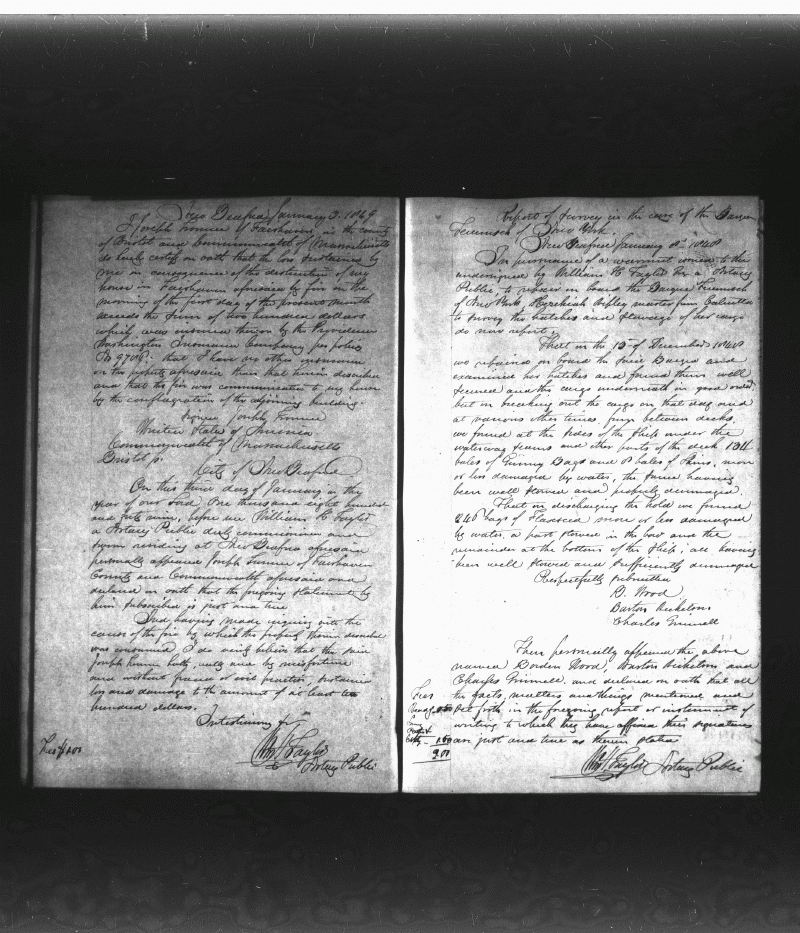 New Bedford January 3. 1849
I Joseph Tonner of Fairhaven in the county
of Bristol and Commonwealth of Massachusetts
do hereby certify on oath that the loss sustained by
me in consequence of the destruction of my
house in Fairhaven aforesaid by fire on the
morning of the first day of the present month
exceeds the sum of two hundred dollars
which was insured thereon by the Providence
Washington Insurance Company per policy
No 9706: that I have no other insurance
on the property aforesaid than that therein described
and that the fire was communicated to my house
by the conflagration of the adjoining building.
Signed Joseph
United States of America
Commonwealth of Massachusetts
Bristol ss.
City of New Bedford
On this third day of January in the
year of our Lord One thousand eight hundred
and forty nine, before me William H Taylor
a Notary Public duly commissioned and
sworn residing at New Bedford aforesaid
personally appeared Joseph of Fairhaven
County and Commonwealth aforesaid and
declared on oath that the foregoing statement by
him subscribed is just and true
And having made inquiry into the
causes of the fire by which the property therein described
was consumed I do verily believe that the said
Joseph really and by misfortune
and without fraud or evil practice, sustained
loss and damage to the amount of at least two
hundred dollars.
In testimony &c
Wm H Taylor
Notary Public
Fees $1.00
Report of Survey in the case of the Barque
Tecumseh of New York.
New Bedford January 8th 1848
In pursuance of a warrant issued to the
undersigned by William H Taylor Esq a Notary
Public, to repair on board the Barque Tecumseh
of New York Hezekiah Ripley master from Calcutta
to survey the hatches and stowage of her cargo
do now report,
That on the 15th of December 1848
we repaired on board the said Barque and
examined her hatches and found them well
secured and the cargo underneath in good order
but in breaking out the cargo on that day and
at various other times from between decks
we found at the sides of the ship under the
waterway seams and other parts of the deck
bales of Gunny Bags and 8 bales of Skins, more
or less damaged by water, the same having
been well stowed and properly dunnaged
That on discharging the hold we found
240 bags of Flaxseed more or less damaged
by water, a part stowed in the bow and the
remainder at the bottom of the ship, all having
been well stowed and sufficiently dunnaged
Respectfully submitted
B. Wood
Barton Ricketson
Charles Grinnell
Then personally appeared the above
named Borden Wood, Barton Ricketson and
Charles Grinnell, and declared on oath that all
the facts, matters and things mentioned and
set forth in the foregoing report or instrument of
writing to which they have affixed their signatures
are just and true as therein stated
Wm H Taylor Notary Public
Fees